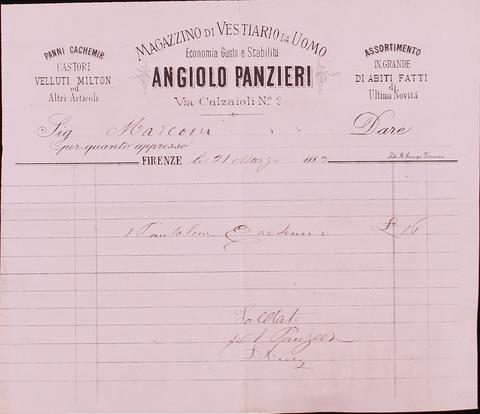 MAGAZZINO DI VESTIARIO DA UOMO
Economia Gusto e Stabilità
ANGIOLO PANZIERI
Via Calzaioli N.º 2
PANNI CACHEMIR
CASTORI
VELLUTI MILTON
ed
Altri Articoli
ASSORTIMENTO
IN GRANDE
DI ABITI FATTI
di
Ultima Novità
Sig Marconi Dare
per quanto appresso
FIRENZE li 21 Marzo 188
1 Pantalone £ 16
Saldato